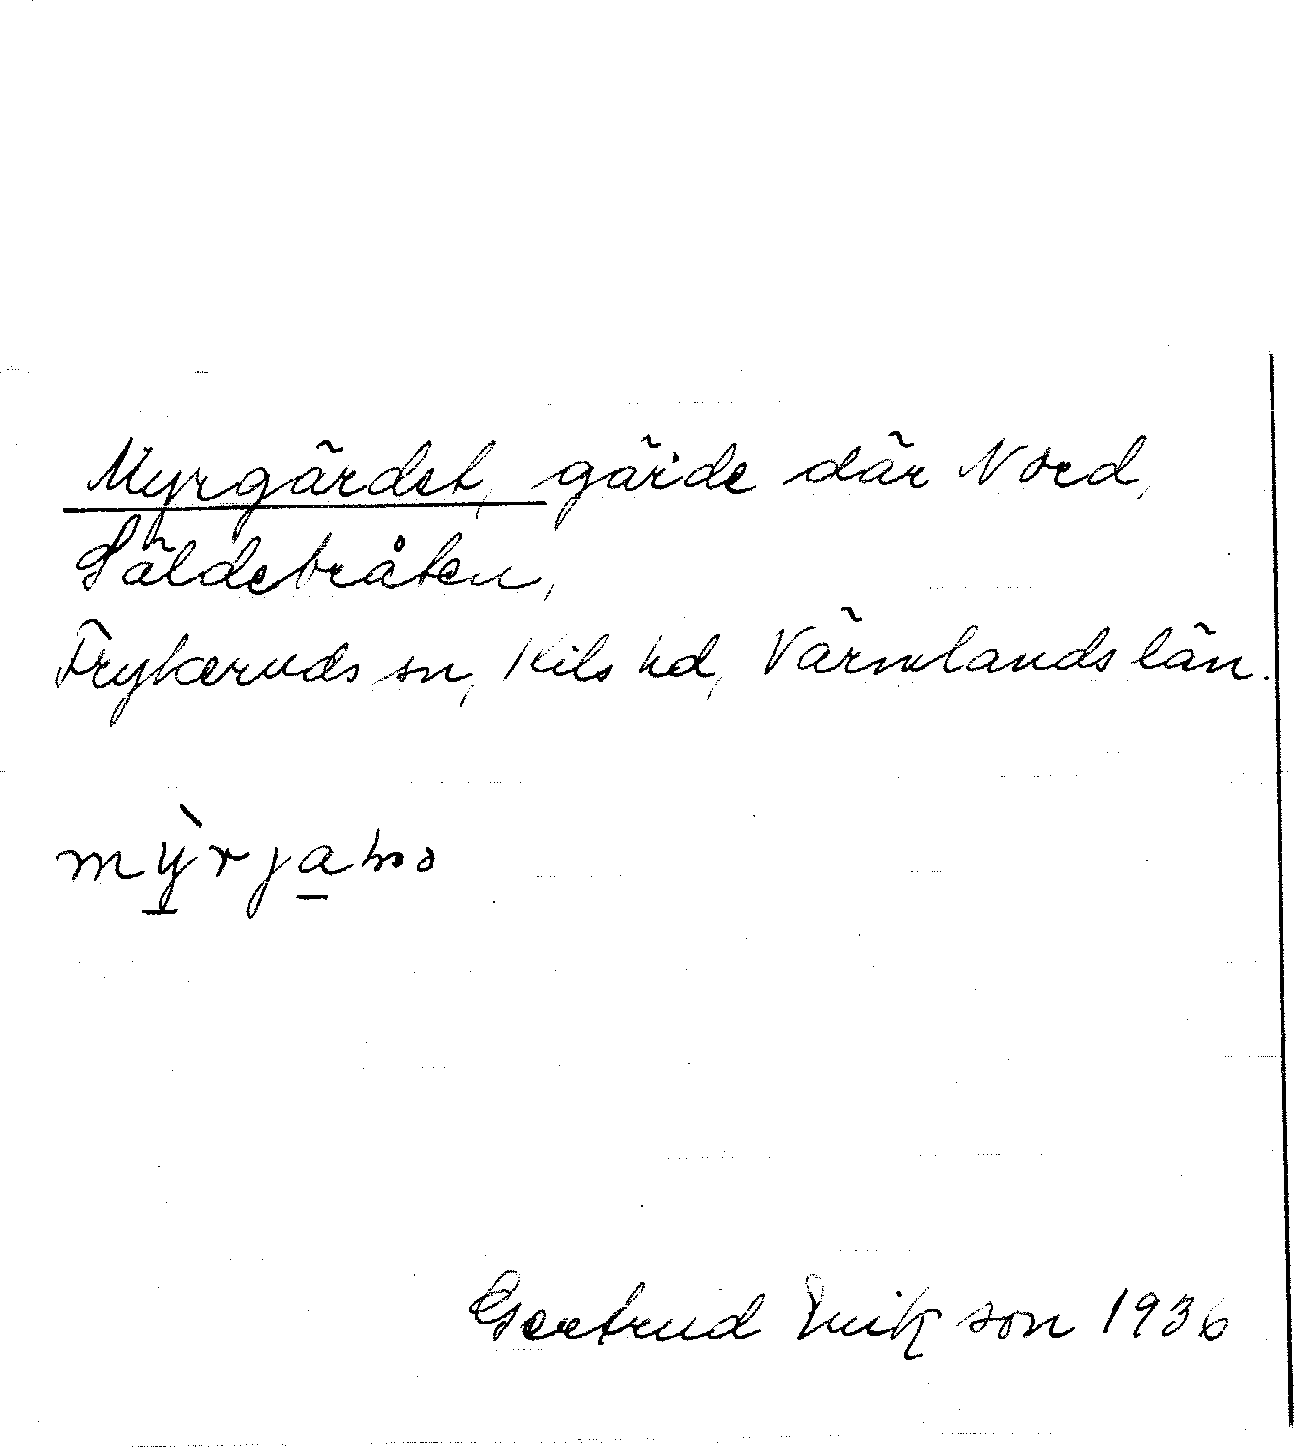 Myrgärdet, gärde där Nord,
Säldebråten,
Frykeruds sn, Kils hd, Värmlands län.
Gertrud Erikson 1936